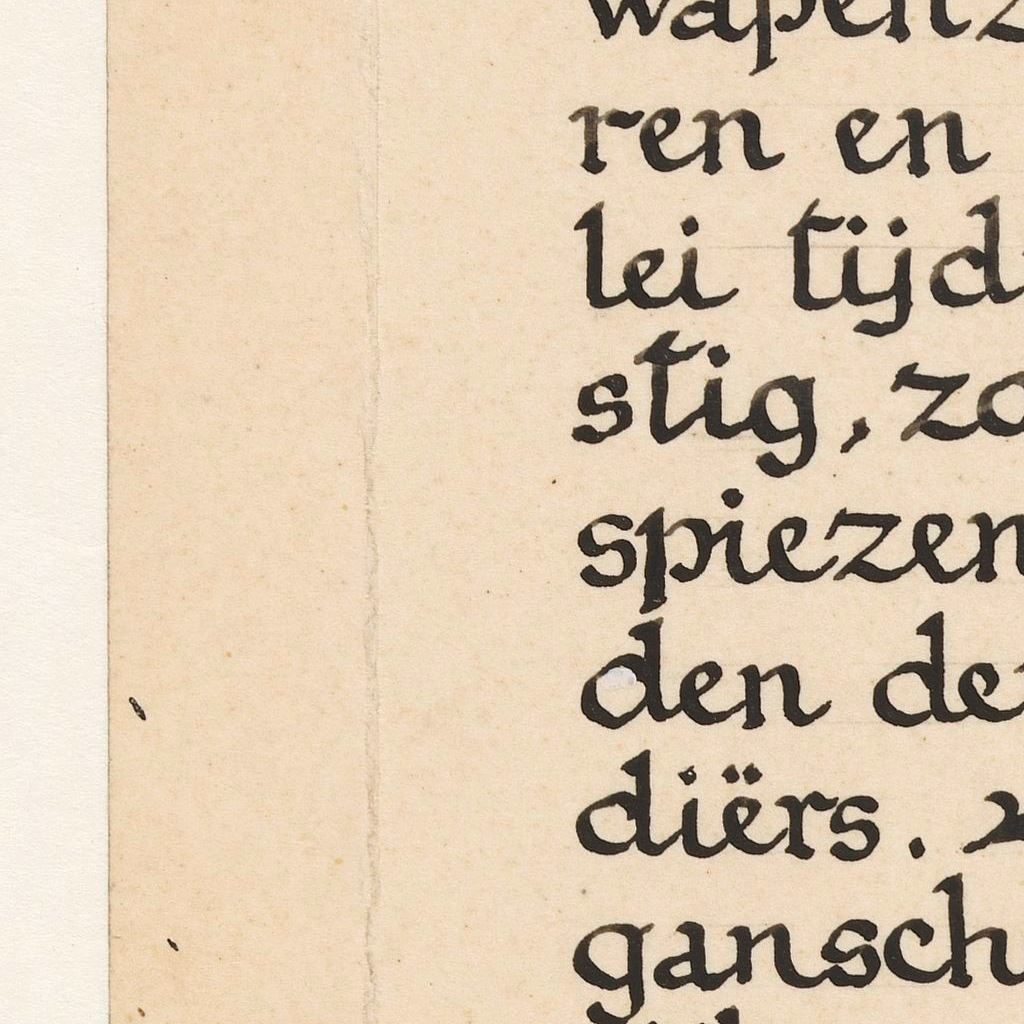 wapenz
ren en
lei tijd
stig, zo
spiezen
den de
diërs.
gansch